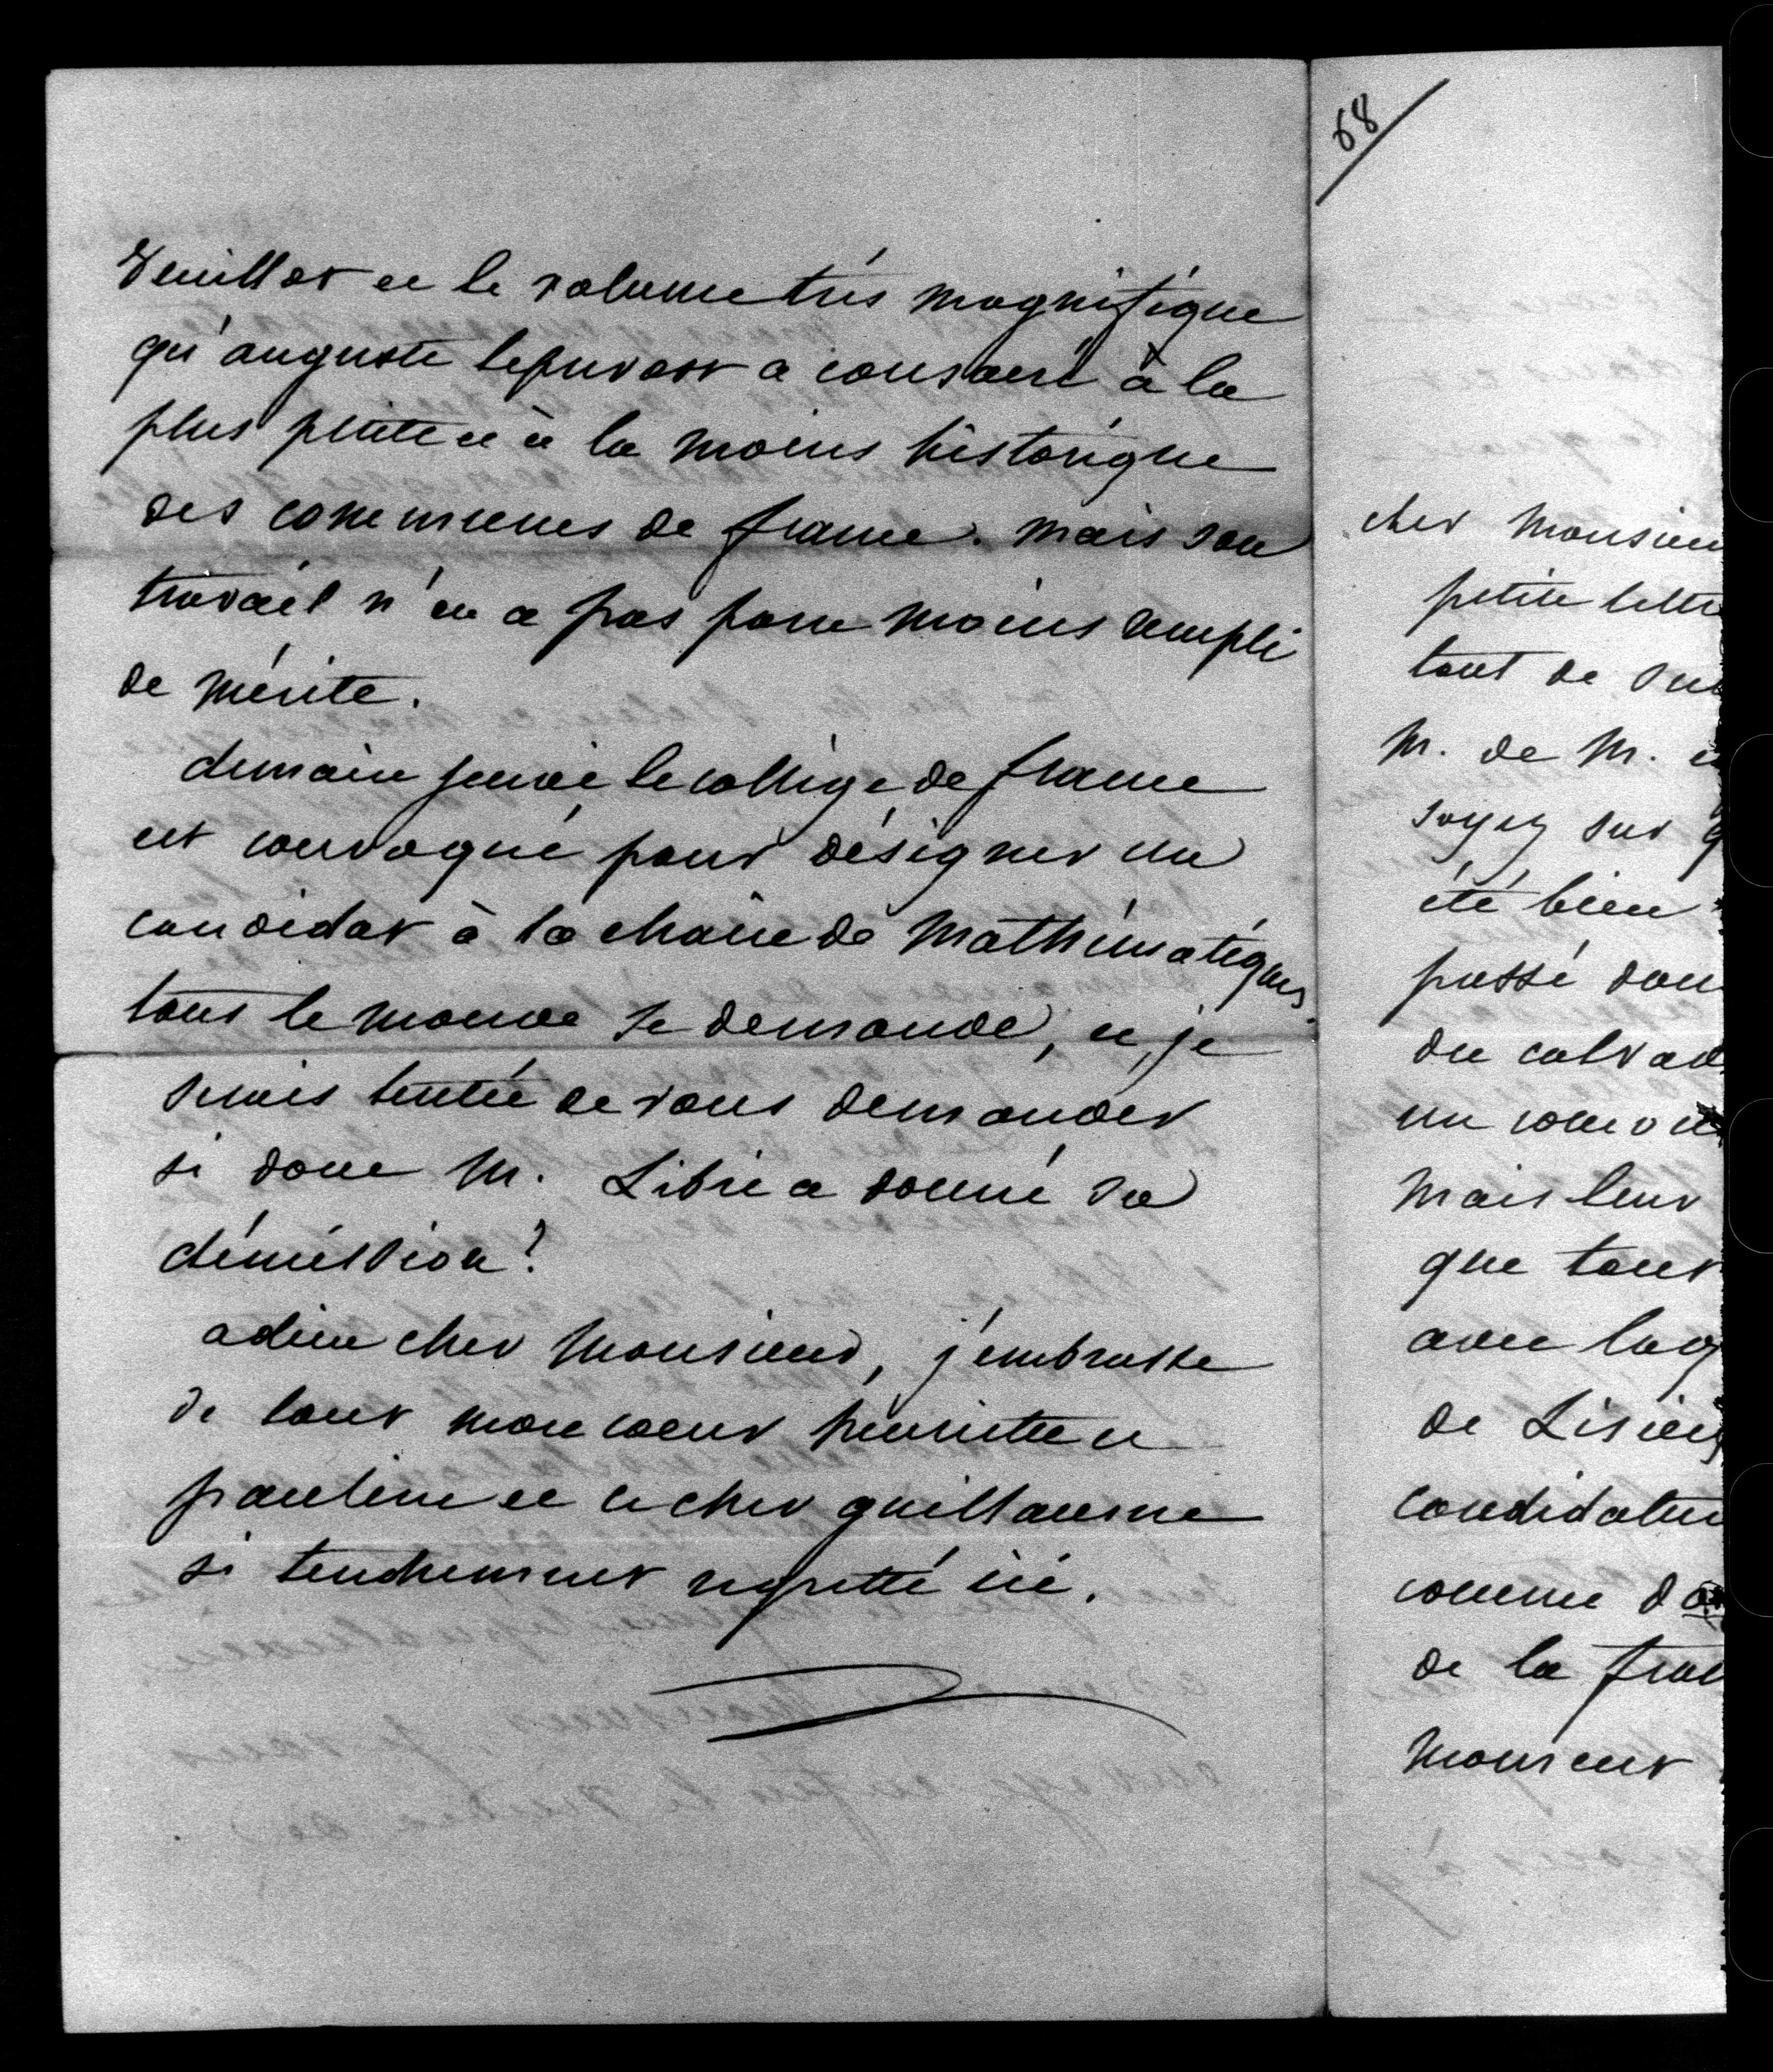 Veuillot et le volume très magnifique
qu'auguste leprevost a consacré à la
plus petite et à la moins historique
des communes de france. mais son
travail n'en a pas pour moins rempli
de mérite.
demain jeudi le collège de france
est convoqué pour désigner un
candidat à la chaire de Mathématiques.
tout le monde se demande, et je
serais tentée de vous demander
si donc M. Libri a donné sa
démission?
adieu cher Monsieur, j'embrasse
de tout mon coeur henriette et
pauline et ce cher guillaume
si tendrement regretté ici.
68
cher Monsieu
petite lettre
tout de sui
M. de M. e
soyez sur q
été bien
passé dan
du calvad
un
Mais leur
que tout
avec laq
de Lisieu
candidatur
comme d
de la fran
Monsieur